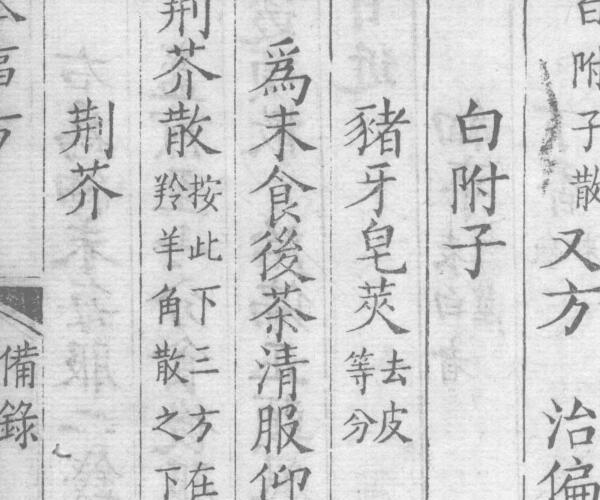 白附子散又方 治偏
白附子
豬牙皂莢去皮等分
爲末食後茶清服仰
荆芥散按此下三方在羚羊角散之下
荆芥
備錄